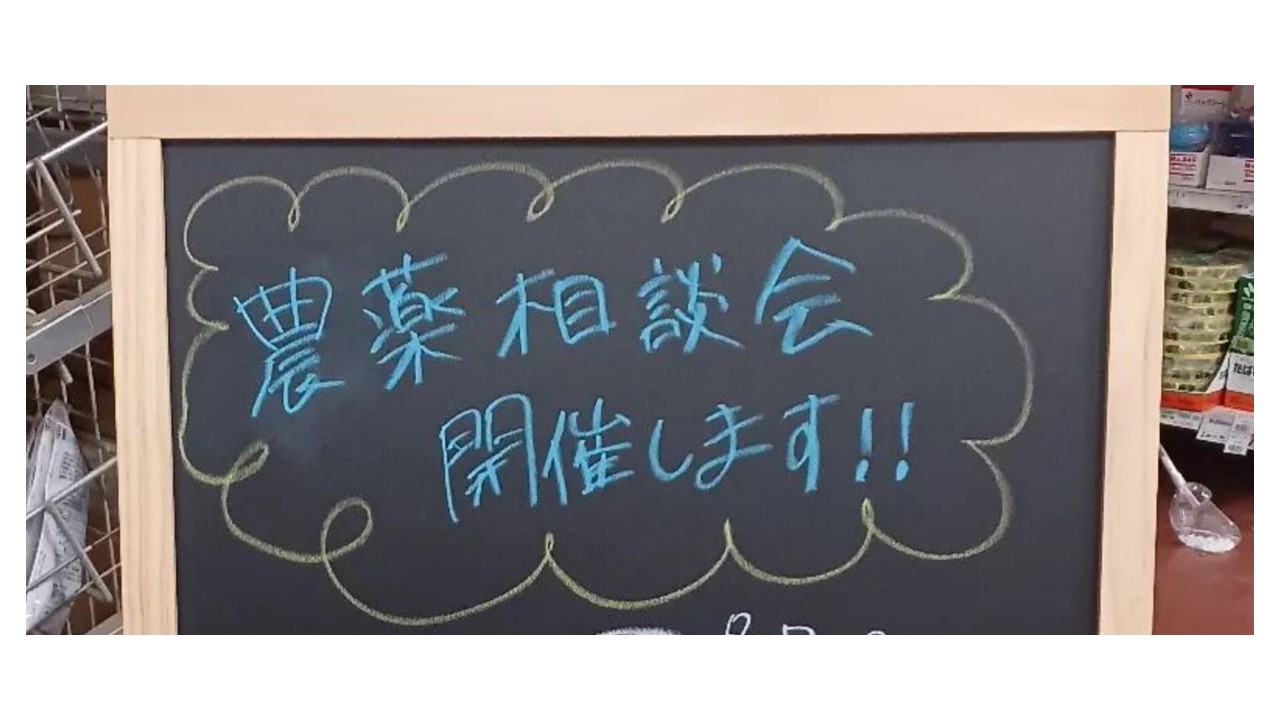 農薬相談会
開催します!!